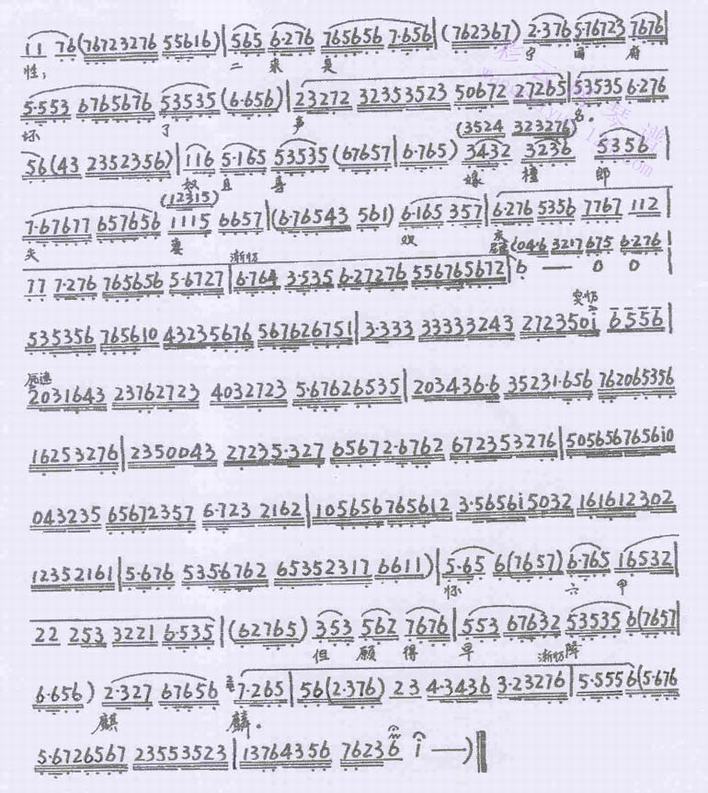 11 76(76723276 55616)|565 6·276 765656 7·656|(762367) 2·376 5·76723 7676|
性； 二 来 是 宁 国 府
5·553 6765676 53535(6·656)|23272 32353523 50672 27265|53535 6·276
坏 了 声 名。
(3524 323276)
56(43 2352356)|116 5·165 53535(67657)|6·765) 3432 3236 5356|
奴 且 寻 嫁 檀 郎
(12315)
7·67677 657656 1115 6657|(6·76543 561) 6·165 357|6·276 5356 7767 112|
夫 妻 欢
渐切
(04·6 3217 675 6·276
77 7·276 765656 5·6727|6·764 3·535 6·27276 556765672|6 — 0 0|
突切
535356 765610 43235676 567626751|3·333 33333243 2723501 6556|
2031643 23762723 4032723 5·67626535|203436·6 35231·656 762065356
16253276|2350043 27235·327 65672·6762 672353276|5056567656i0
043235 65672357 6·723 2162|105656765612 3·5656i5032 161612302
12352161|5·676 5356762 65352317 6611)|5·65 6(7657) 6·765 16532|
怀 六 甲
22 253 3221 6·535|(62765) 353 562 7676|553 67632 53535 6(7657|
但 愿 得 早 渐切 降
6·656) 2·327 67656 7·265|56(2·376) 23 4·3436 3·23276|5·5556(5·676
麒 麟。
5·6726567 23553523|13764356 76236 i —)‖